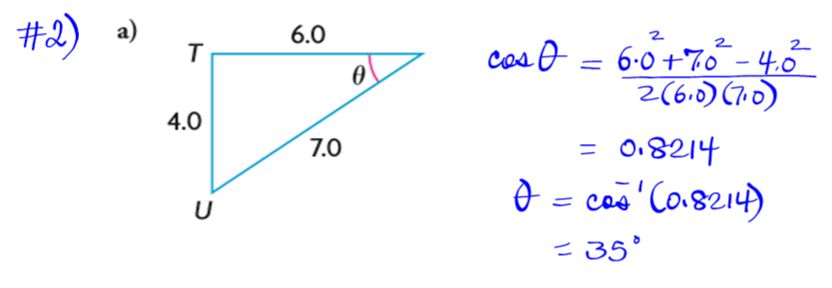 #2) a)
6.0
T
θ
4.0
7.0
U
cos θ = 6.0² + 7.0² - 4.0²
2(6.0)(7.0)
= 0.8214
θ = cos⁻¹(0.8214)
= 35°